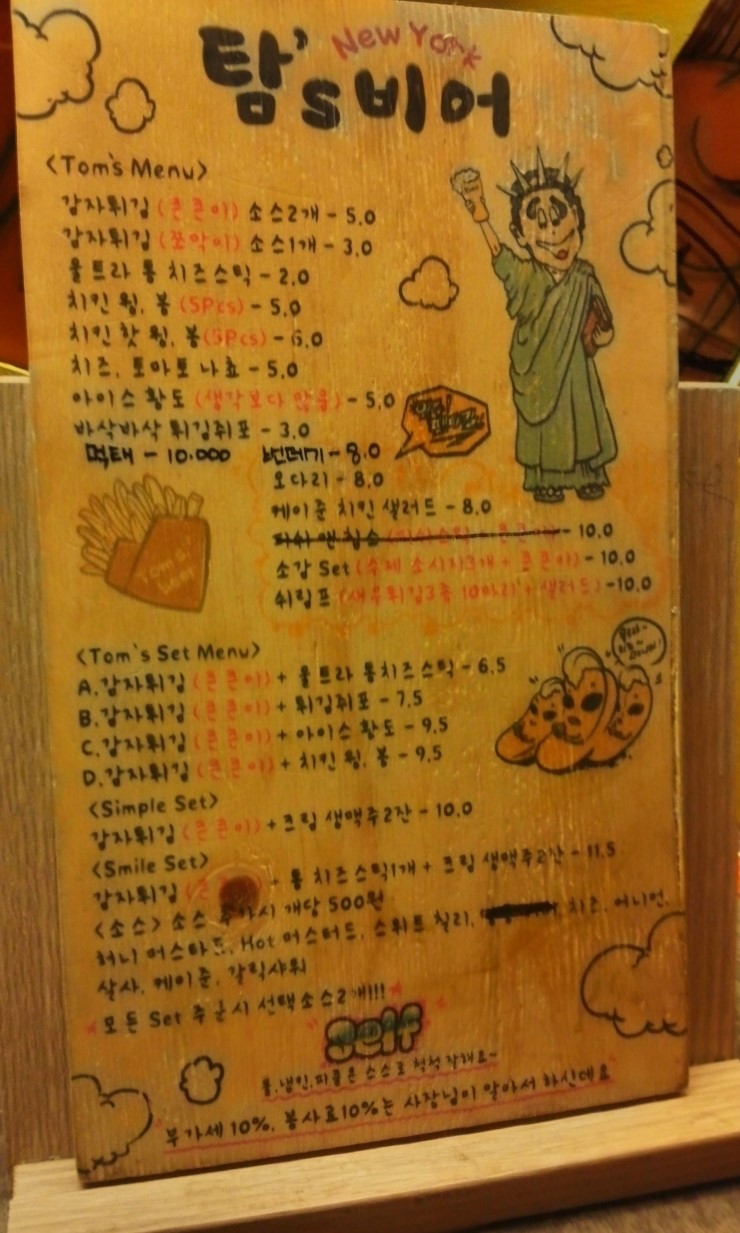 New York
탐's 비어
<Tom's Menu>
감자튀김 (큰 큰이) 소스2개 - 5.0
감자튀김 (쪼악이) 소스1개 - 3.0
울트라 통 치즈스틱 - 2.0
치킨 윙, 봉 (5Pcs) - 5.0
치킨 핫 윙, 봉 (5Pcs) - 6.0
치즈, 토마토 나쵸 - 5.0
아이스 황도 (생각보다 많음) - 5.0
바삭바삭 튀김쥐포 - 3.0
먹태 - 10.000 번데기 - 8.0
오다리 - 8.0
케이준 치킨 샐러드 - 8.0
- 10.0
소감 Set (수제 소시지3개 + 큰 큰이) - 10.0
쉬림프 (새우튀김3종 10마리 + 샐러드) - 10.0
Tom's beer
<Tom's Set Menu>
A.감자튀김 (큰 큰이) + 울트라 통치즈스틱 - 6.5
B.감자튀김 (큰 큰이) + 튀김쥐포 - 7.5
C.감자튀김 (큰 큰이) + 아이스 황도 - 9.5
D.감자튀김 (큰 큰이) + 치킨 윙, 봉 - 9.5
<Simple Set>
감자튀김 (큰 큰이) + 크림 생맥주2잔 - 10.0
<Smile Set>
감자튀김 (큰 + 통 치즈스틱1개 + 크림 생맥주2잔 - 11.5
<소스> 소스 추가시 개당 500원
허니 머스타드, Hot 머스터드, 스위트 칠리, 치즈, 어니언,
살사, 케이준, 갈릭샤워
모든 Set 주문시 선택소스2개!!!
Self
물,냅킨,피클은 스스로 척척 잘해요~
부가세 10%, 봉사료10%는 사장님이 알아서 하신데요